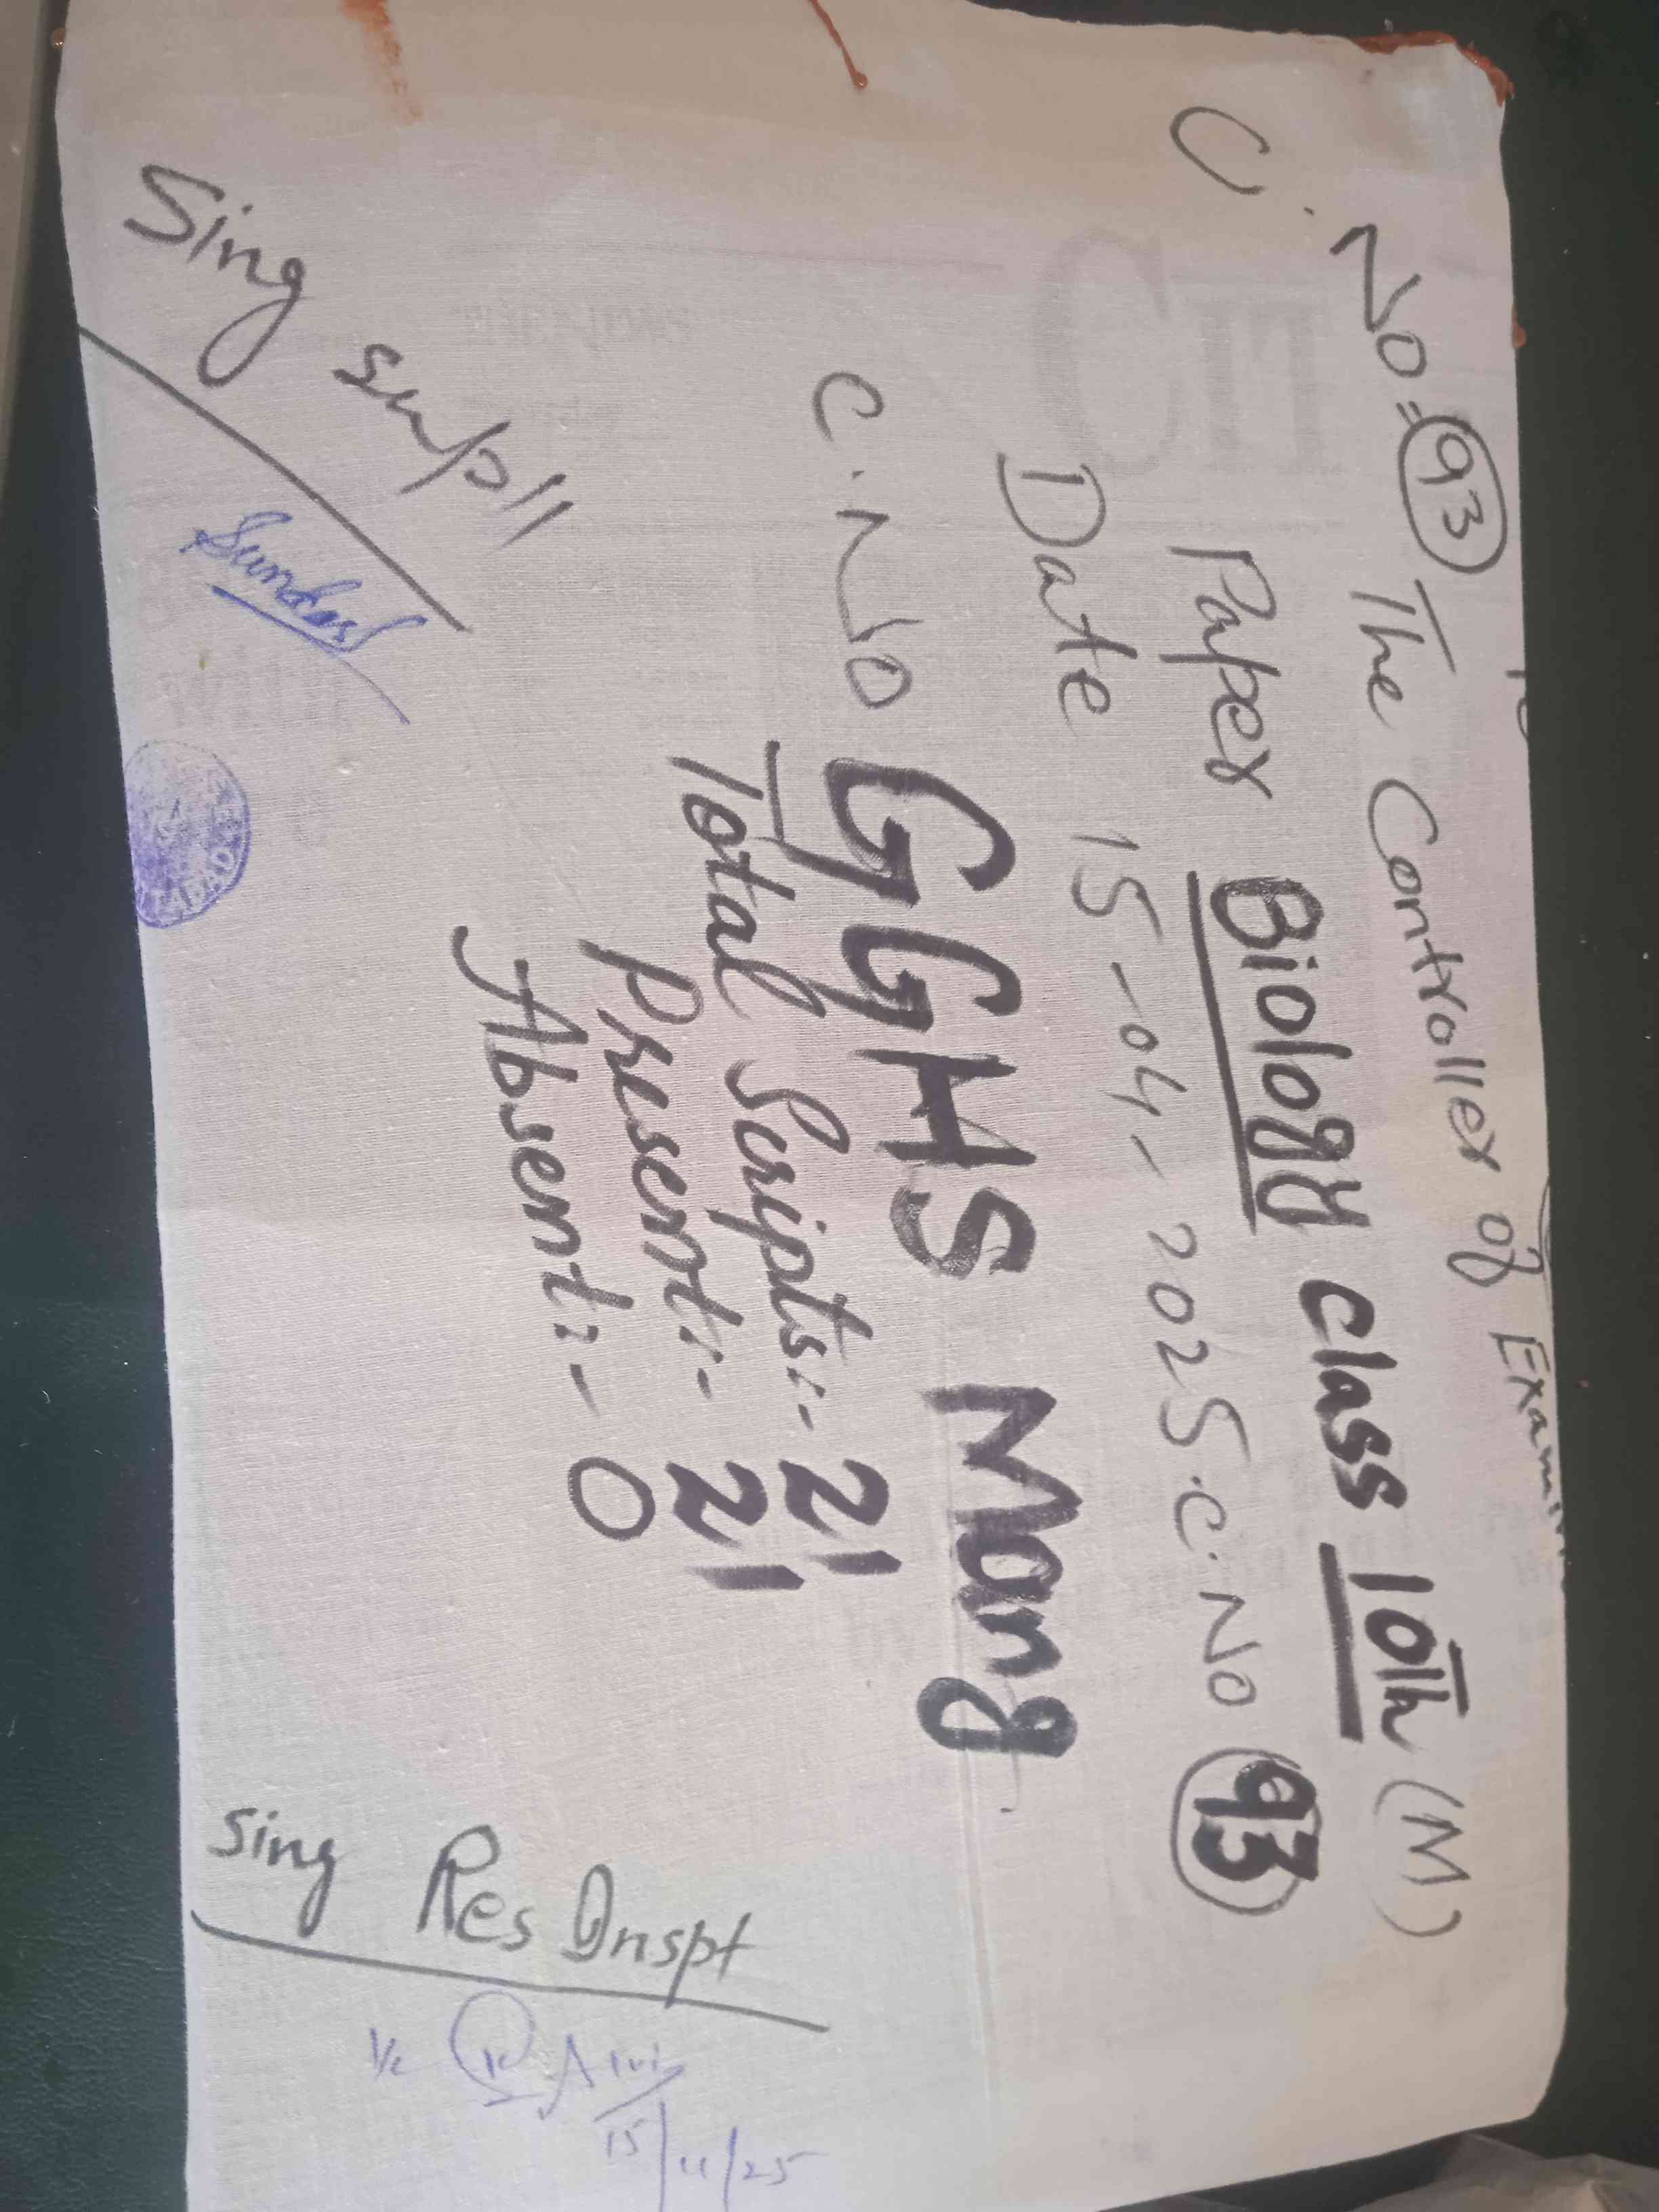 C. No = 93 The Controller of Exam
Paper Biology class 10th (M)
Date 15-04-2025. C. No 93
C. No GGHS Mang
Total Scripts:- 21
Present:- 21
Absent:- 0
Sing Supll
Sing Res Inspt
15/4/25